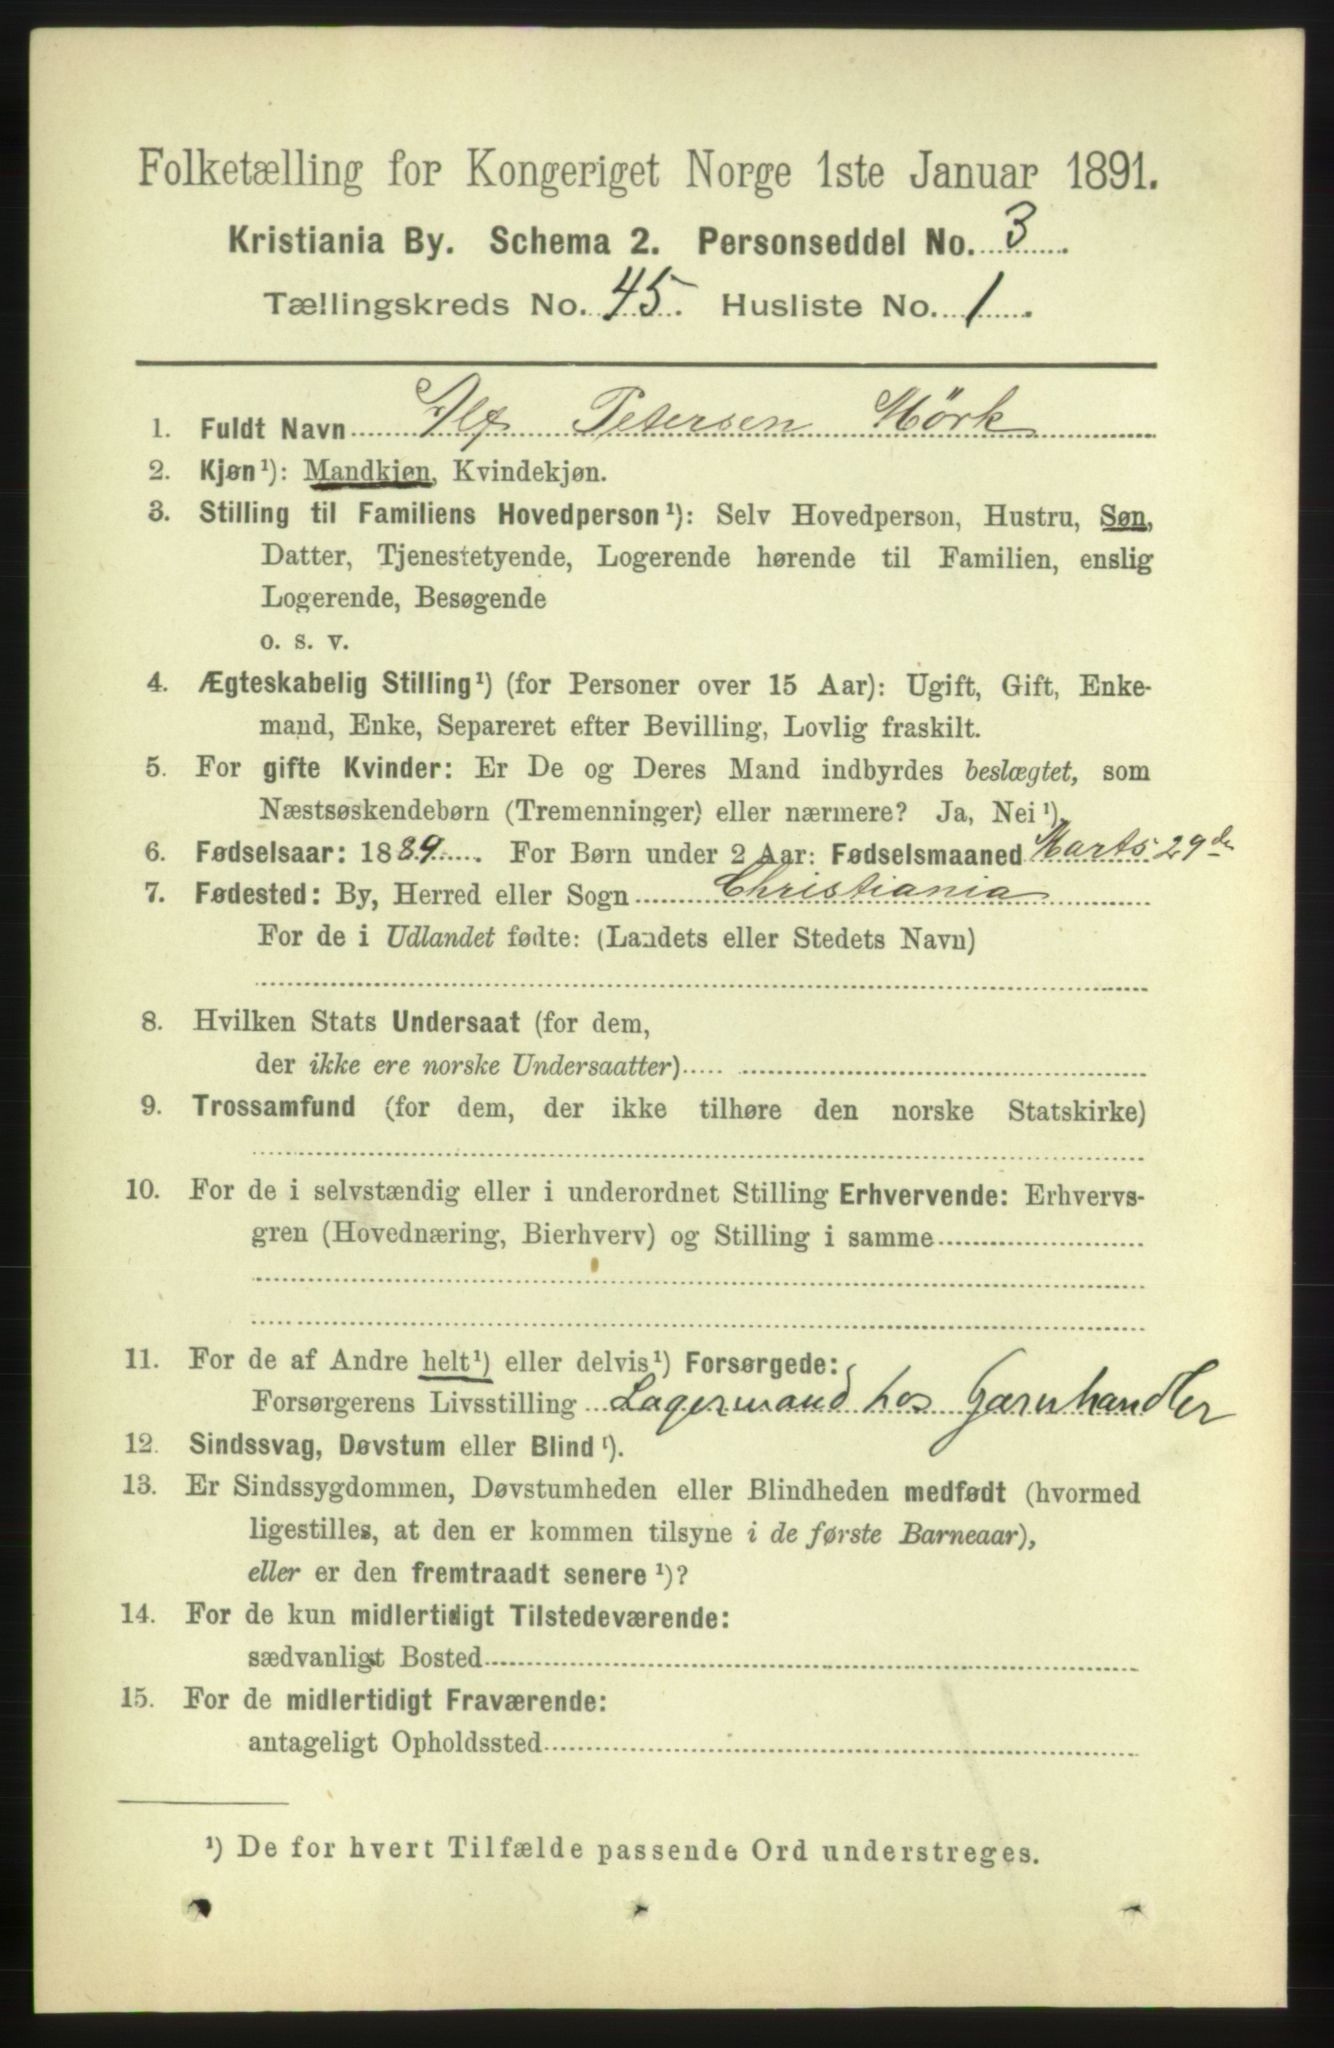 Folketælling for Kongeriget Norge 1ste Januar 1891.
Kristiania By. Schema 2. Personseddel No. 3.
Tællingskreds No. 45. Husliste No. 1.
1. Fuldt Navn Alf Petersen Mörk
2. Kjøn¹): Mandkjøn, Kvindekjøn.
3. Stilling til Familiens Hovedperson¹): Selv Hovedperson, Hustru, Søn,
Datter, Tjenestetyende, Logerende hørende til Familien, enslig
Logerende, Besøgende
o. s. v.
4. Ægteskabelig Stilling¹) (for Personer over 15 Aar): Ugift, Gift, Enke-
mand, Enke, Separeret efter Bevilling, Lovlig fraskilt.
5. For gifte Kvinder: Er De og Deres Mand indbyrdes beslægtet, som
Næstsøskendebørn (Tremenninger) eller nærmere? Ja, Nei¹).
6. Fødselsaar: 1889. For Børn under 2 Aar: Fødselsmaaned Marts 29de
7. Fødested: By, Herred eller Sogn Christiania
For de i Udlandet fødte: (Landets eller Stedets Navn)
8. Hvilken Stats Undersaat (for dem,
der ikke ere norske Undersaatter)
9. Trossamfund (for dem, der ikke tilhøre den norske Statskirke)
10. For de i selvstændig eller i underordnet Stilling Erhvervende: Erhvervs-
gren (Hovednæring, Bierhverv) og Stilling i samme
11. For de af Andre helt¹) eller delvis¹) Forsørgede:
Forsørgerens Livsstilling Lagermand hos Garnhandler
12. Sindssvag, Døvstum eller Blind¹).
13. Er Sindssygdommen, Døvstumheden eller Blindheden medfødt (hvormed
ligestilles, at den er kommen tilsyne i de første Barneaar),
eller er den fremtraadt senere¹)?
14. For de kun midlertidigt Tilstedeværende:
sædvanligt Bosted
15. For de midlertidigt Fraværende:
antageligt Opholdssted
¹) De for hvert Tilfælde passende Ord understreges.